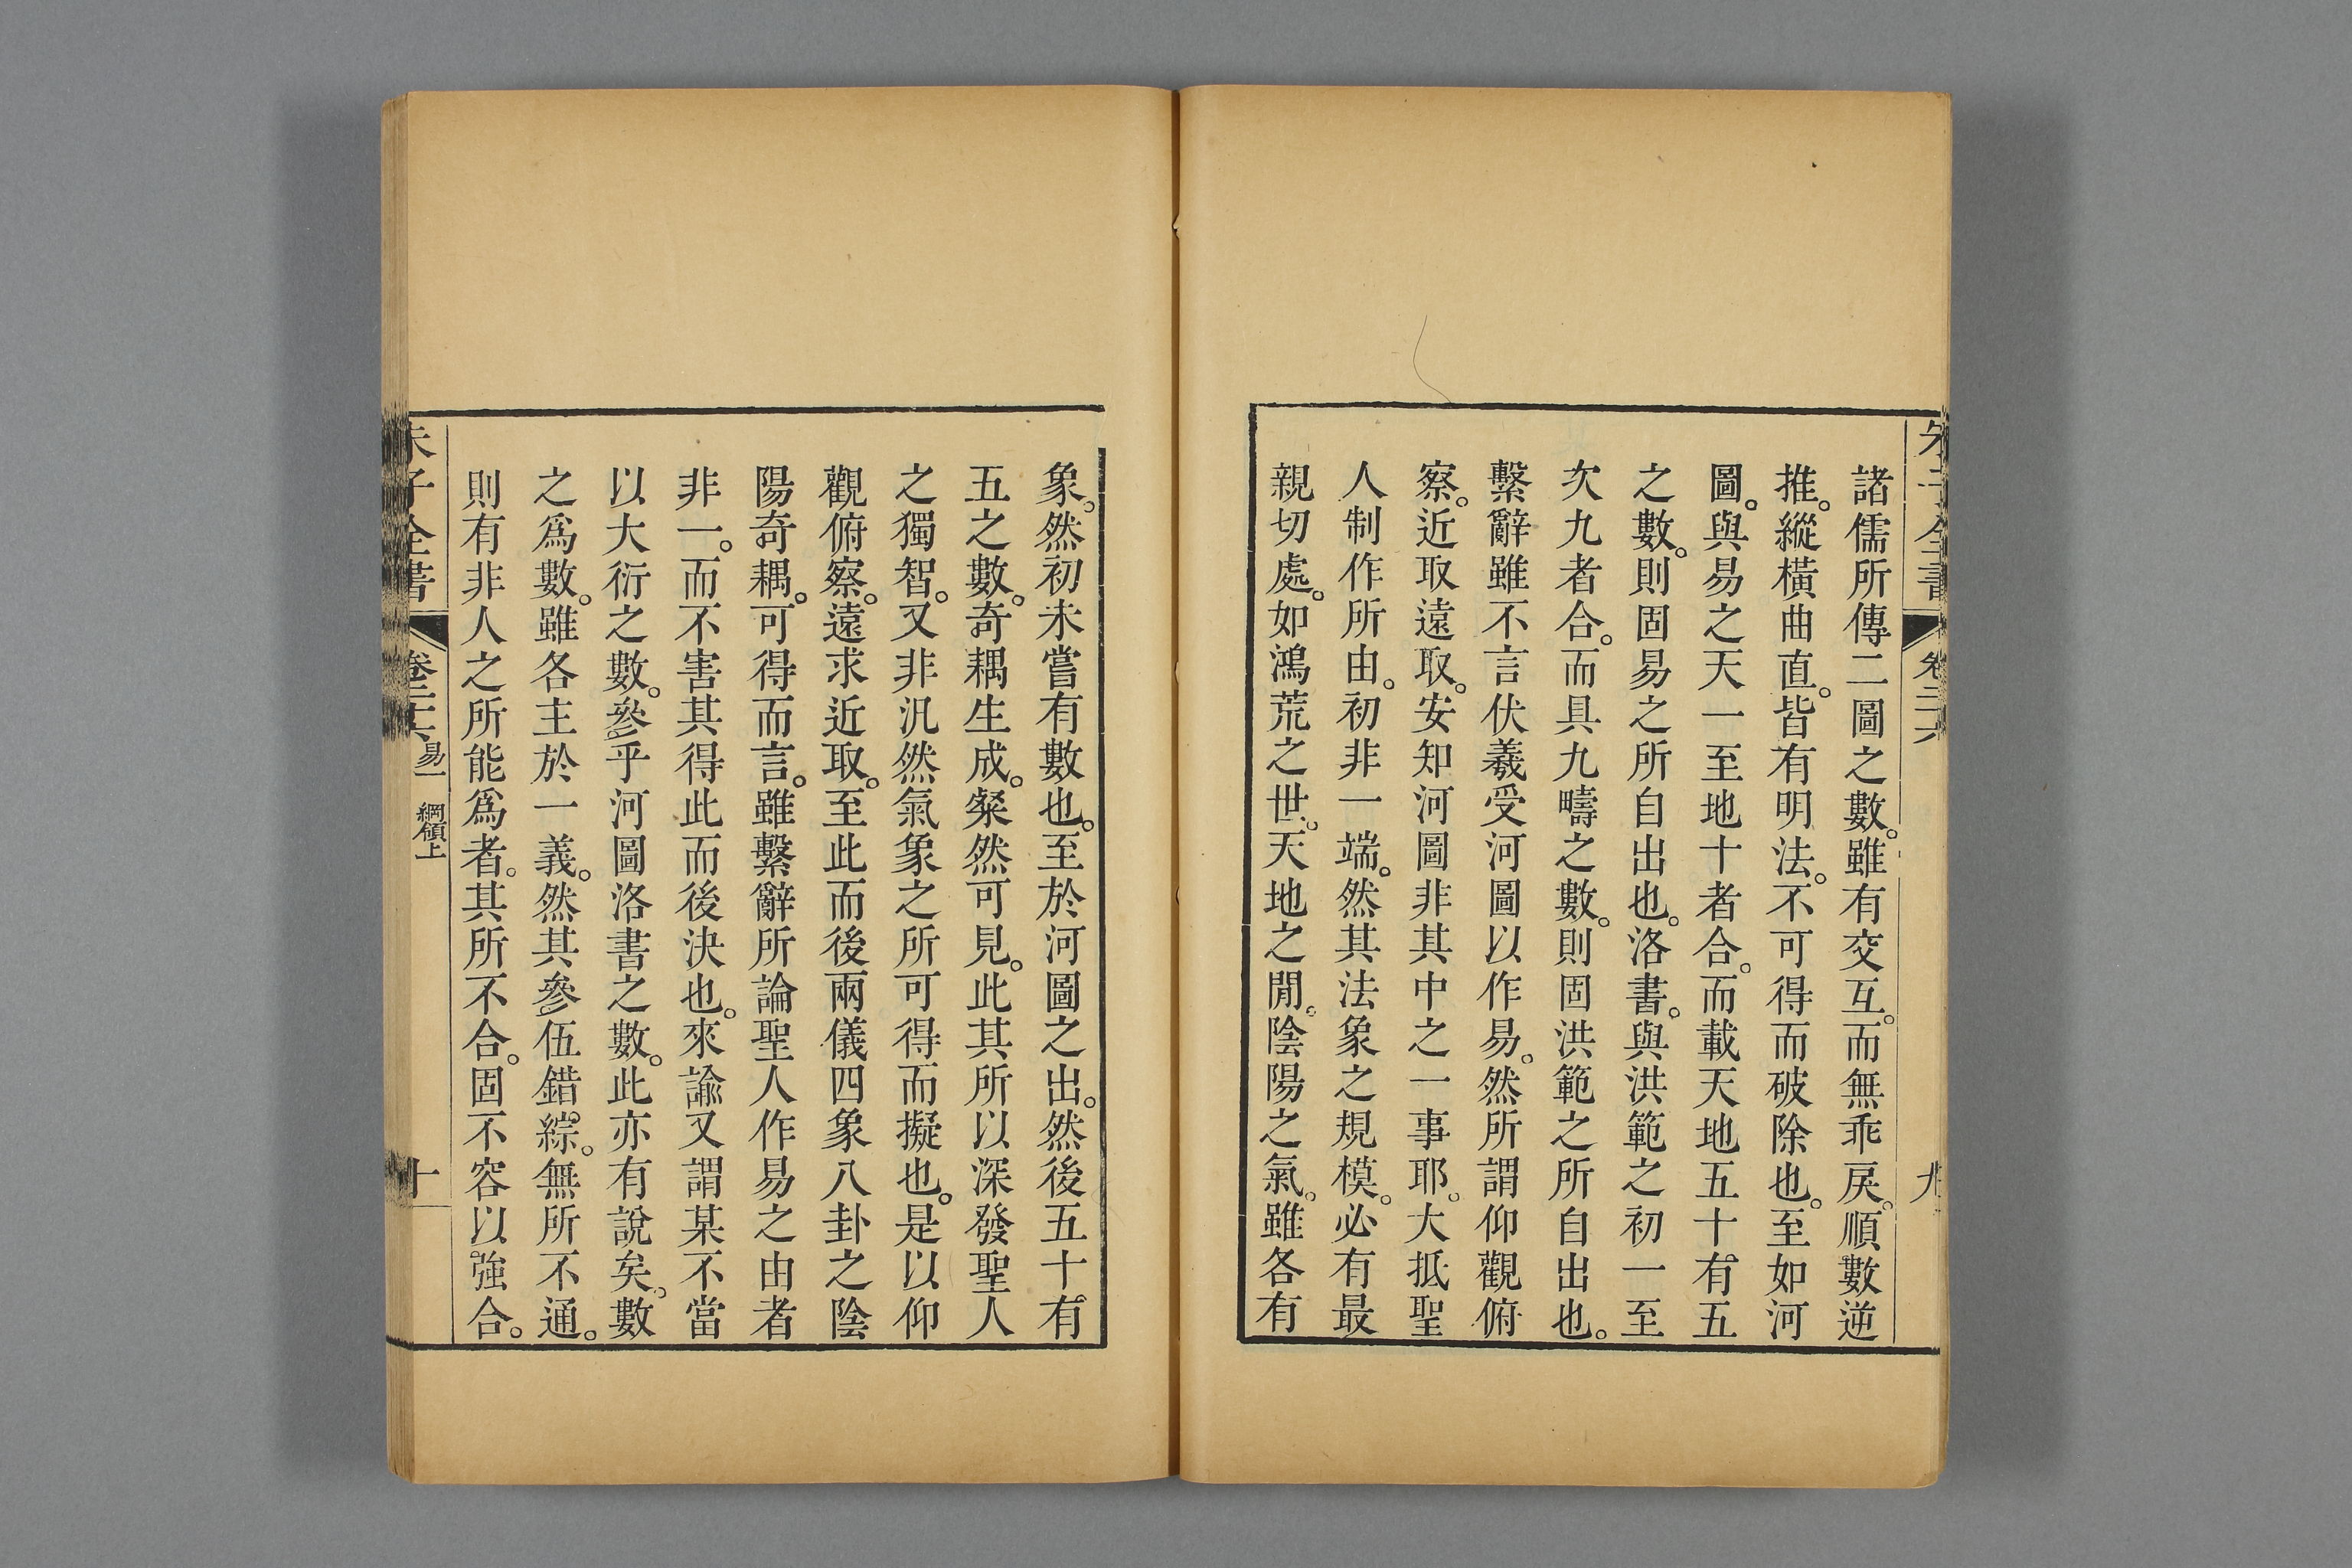 朱子全書 卷二十六 九
諸儒所傳二圖之數。雖有交互。而無乖戾。順數逆
推。縱橫曲直。皆有明法。不可得而破除也。至如河
圖。與易之天一至地十者合。而載天地五十有五
之數。則固易之所自出也。洛書。與洪範之初一至
次九者合。而具九疇之數。則固洪範之所自出也。
繫辭雖不言伏羲受河圖以作易。然所謂仰觀俯
察。近取遠取。安知河圖非其中之一事耶。大抵聖
人制作所由。初非一端。然其法象之規模。必有最
親切處。如鴻荒之世。天地之閒。陰陽之氣。雖各有
象。然初未嘗有數也。至於河圖之出。然後五十有
五之數。奇耦生成。粲然可見。此其所以深發聖人
之獨智。又非汎然氣象之所可得而擬也。是以仰
觀俯察。遠求近取。至此而後兩儀四象八卦之陰
陽奇耦。可得而言。雖繫辭所論聖人作易之由者
非一。而不害其得此而後決也。來諭又謂某不當
以大衍之數。參乎河圖洛書之數。此亦有說矣。數
之爲數。雖各主於一義。然其參伍錯綜。無所不通。
則有非人之所能爲者。其所不合。固不容以強合。
朱子全書 卷二十六 易一 綱領上 十